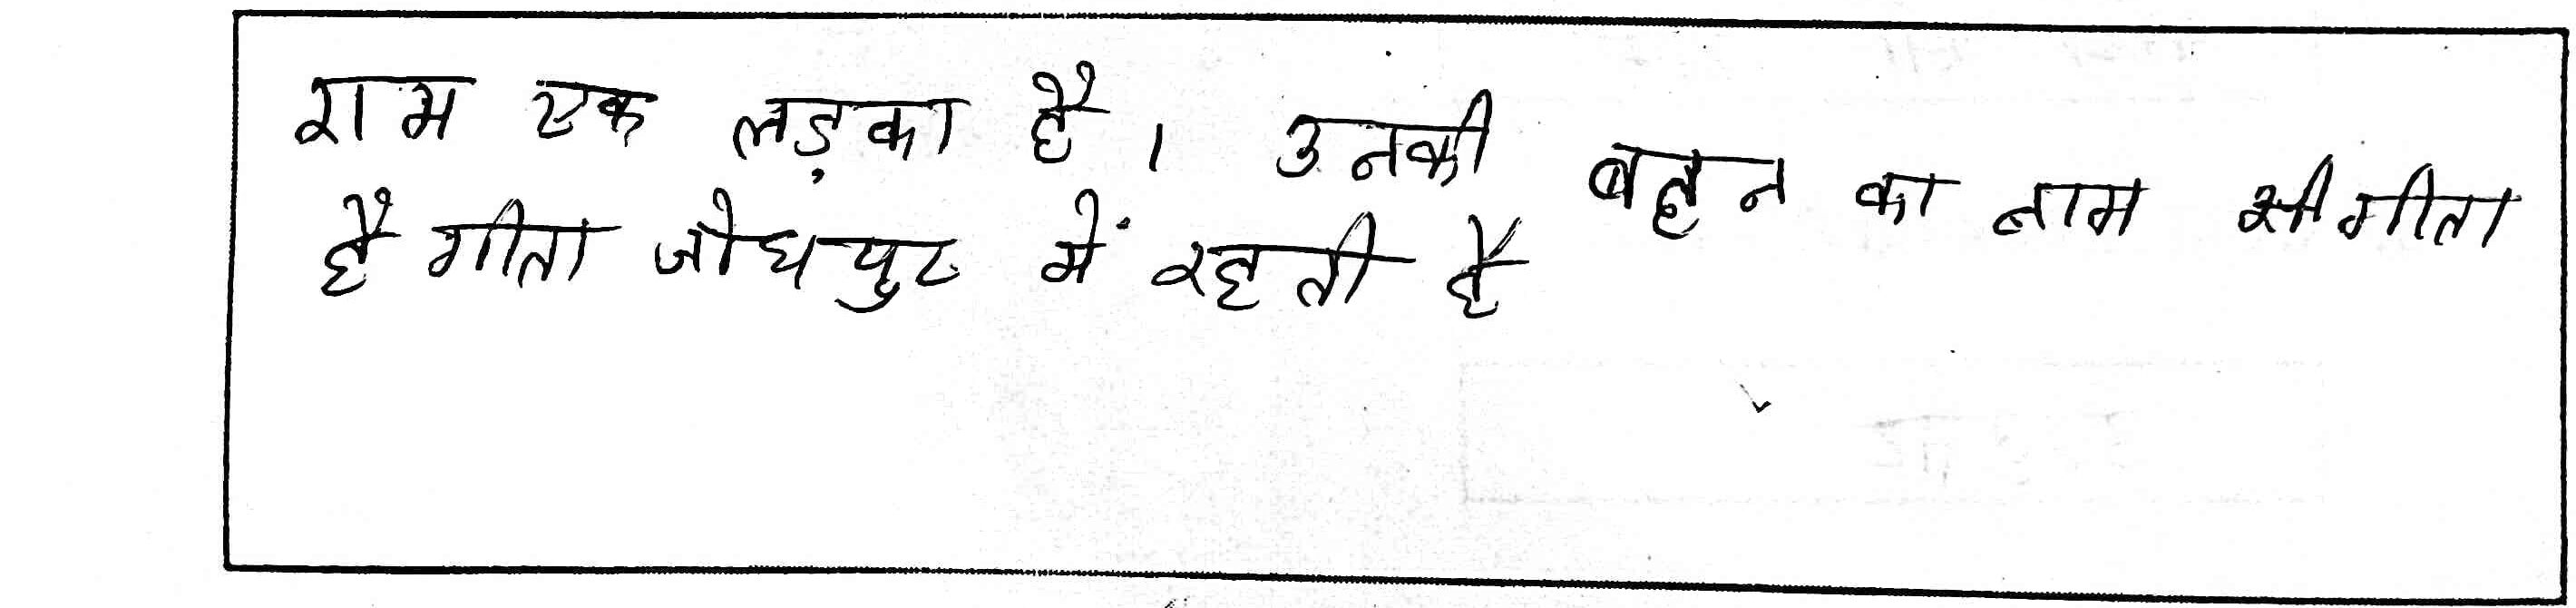 राम एक लड़का है। उनकी बहन का नाम श्री गीता
है गीता जोधपुर में रहती है